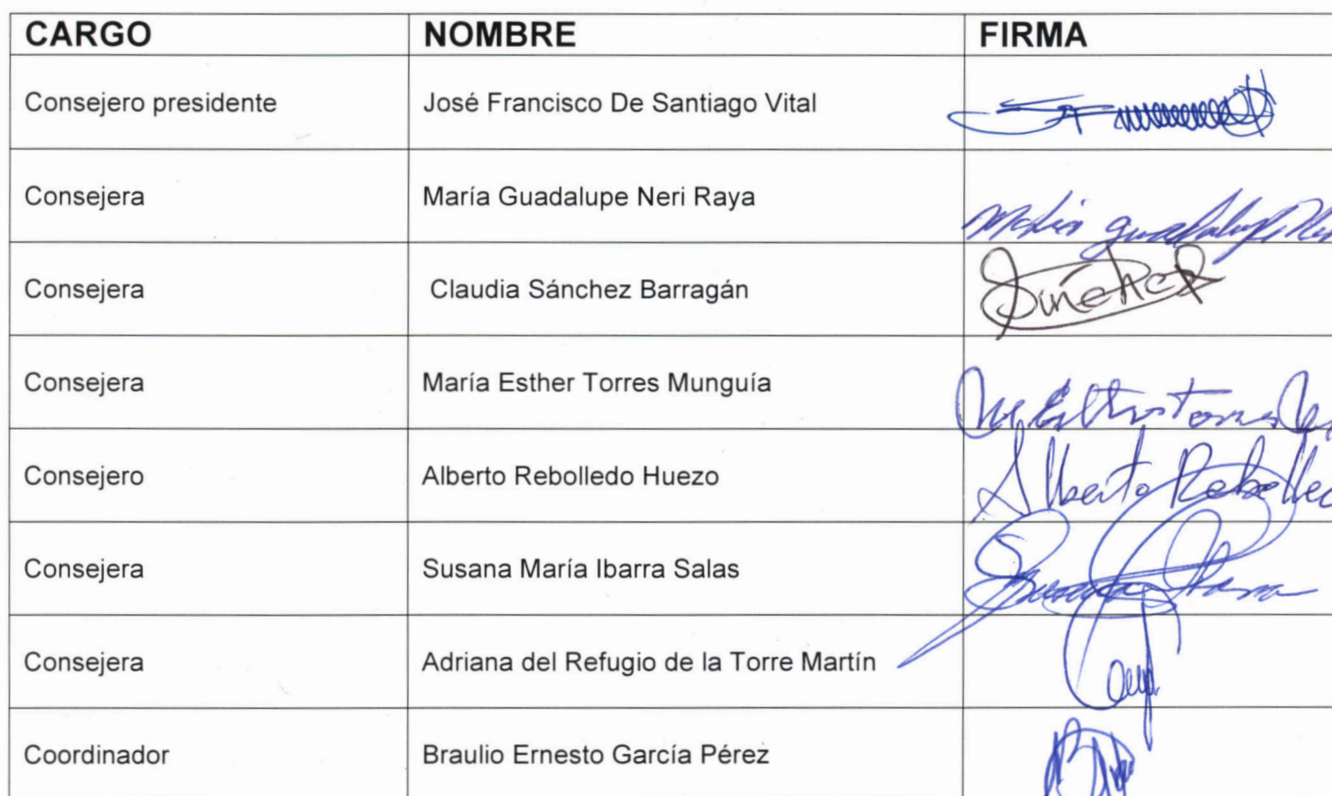 CARGO NOMBRE FIRMA
Consejero presidente José Francisco De Santiago Vital
Consejera María Guadalupe Neri Raya María Guadalupe
Consejera Claudia Sánchez Barragán Sánchez
Consejera María Esther Torres Munguía Ma. Esther Torres
Consejero Alberto Rebolledo Huezo Alberto Rebolledo
Consejera Susana María Ibarra Salas Susana Ibarra
Consejera Adriana del Refugio de la Torre Martín
Coordinador Braulio Ernesto García Pérez